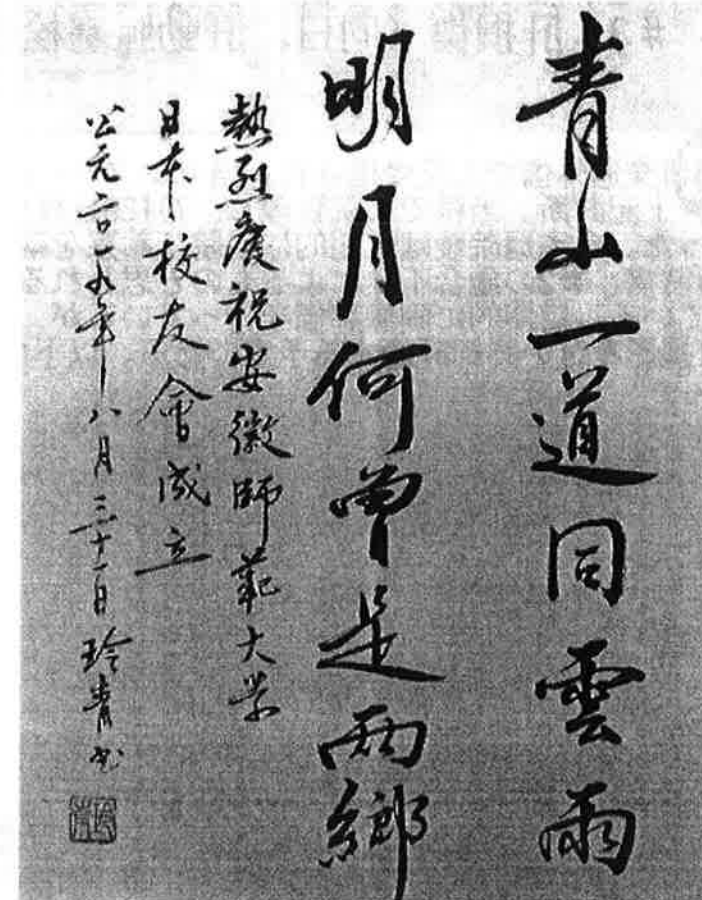 青山一道同雲雨
明月何曾是兩鄉
熱烈慶祝安徽師範大学
日本校友會成立
公元二〇一九年八月三十一日 玲青书